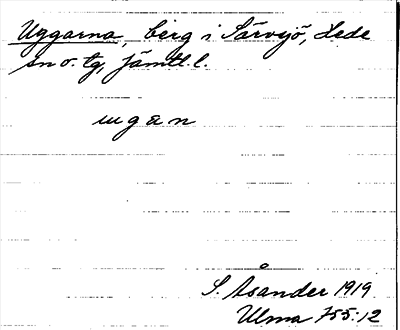 Uggarna, berg i Särvsjö, Hede
sn o. tg, Jämtl. l.
ugan
S. Åsander 1919
Ulma 755:12